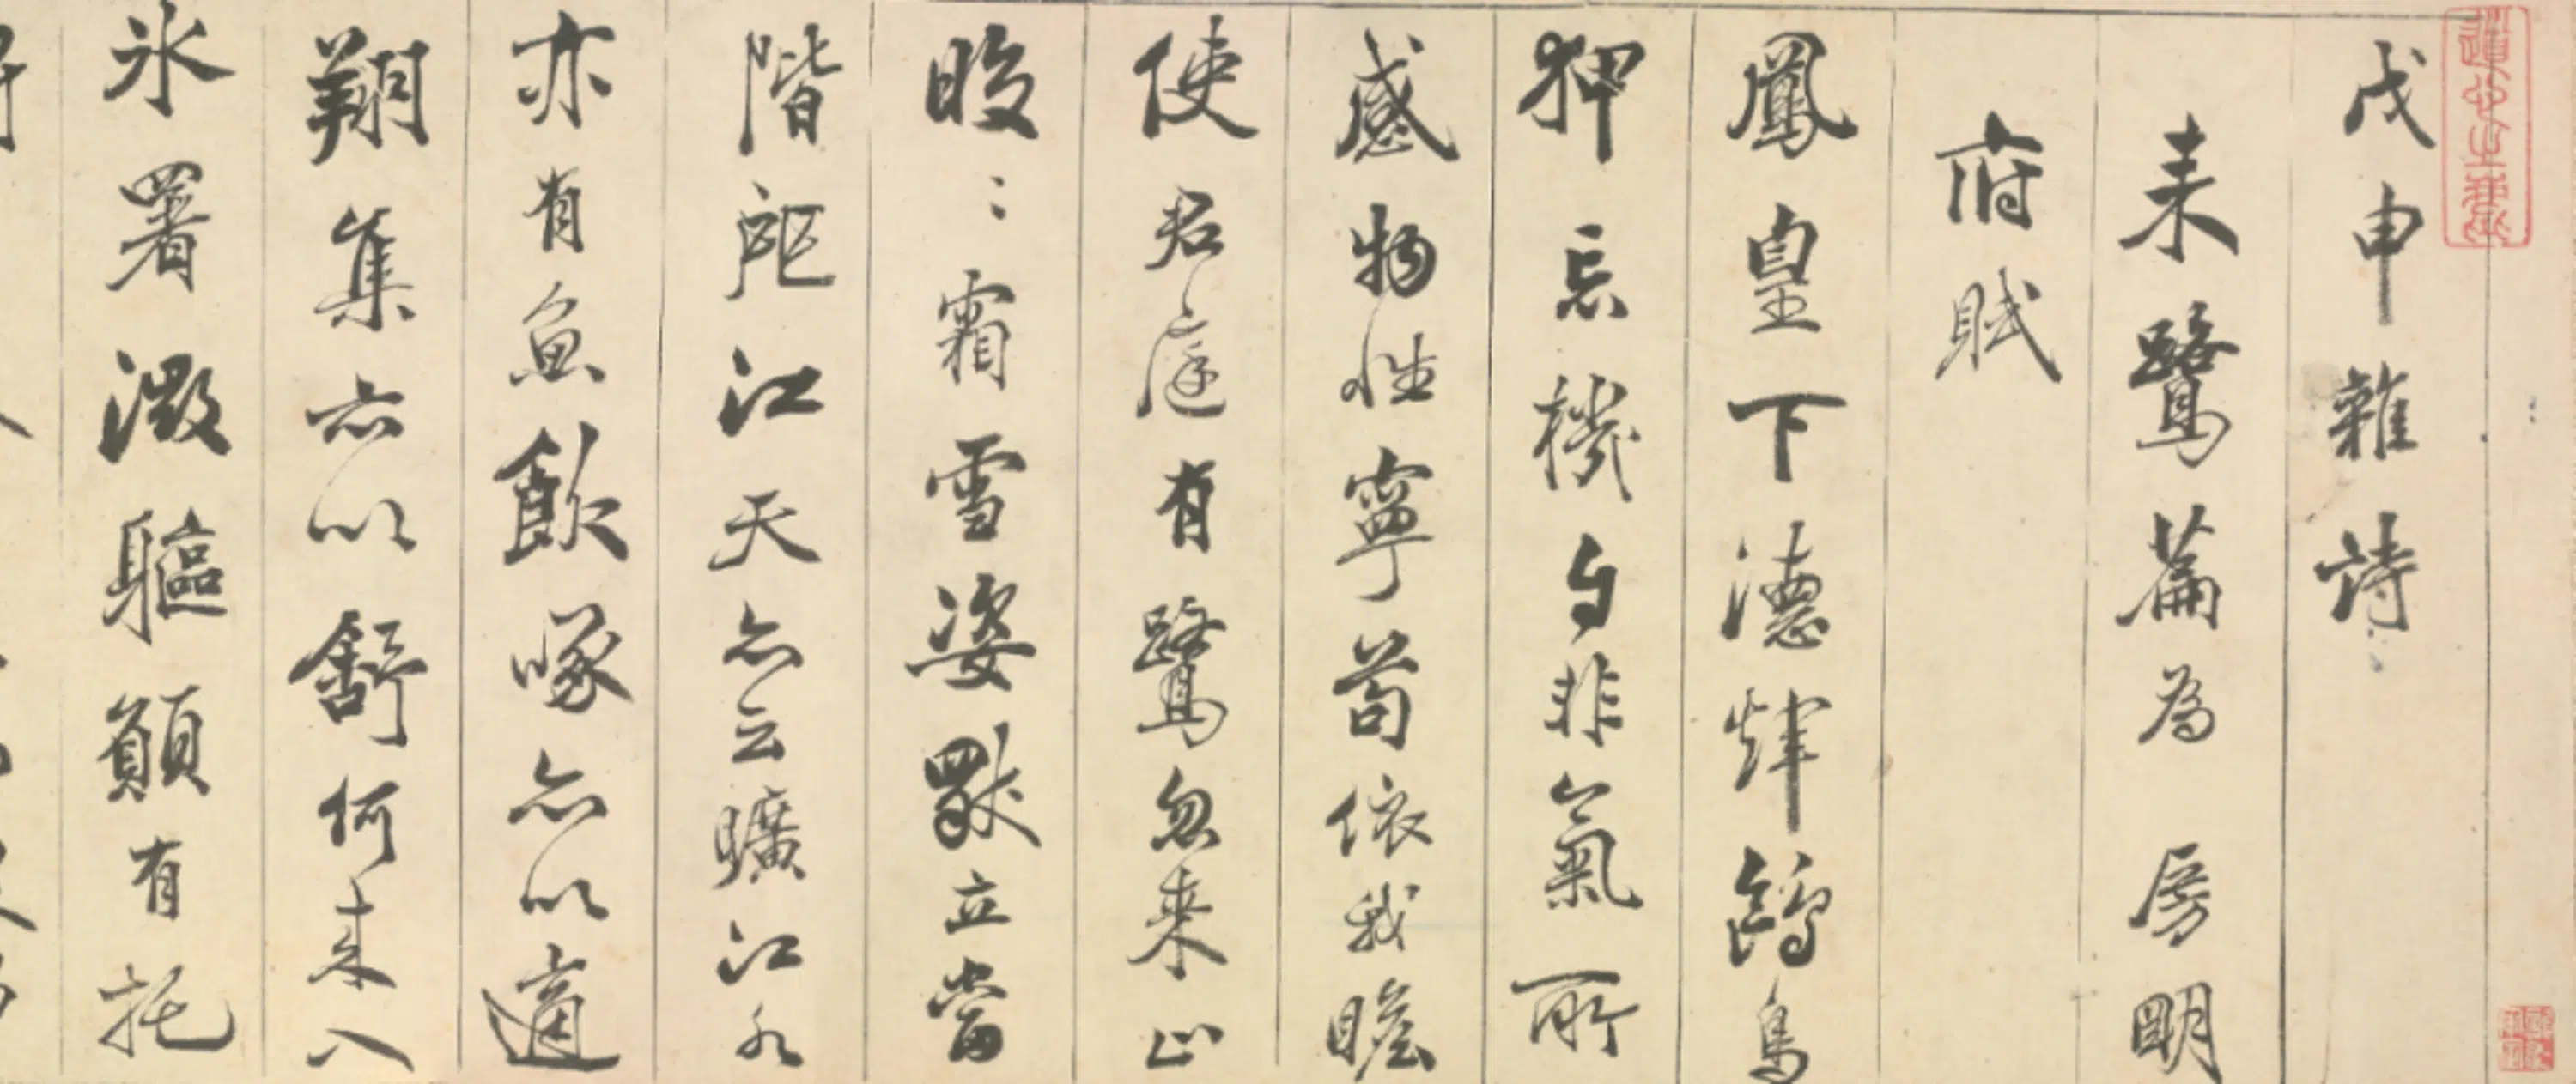 戊申雜詩
来鷺篇為 房明
府賦
鳳皇下德煇鷗鳥
狎忘機自非氣所
感物性寧苟依我瞻
使君庭有鷺忽来止
晈〻霜雪姿獸立當
階戺江天亦云曠江水
亦有魚飲啄亦以適
翔集亦以舒何来入
氷署澂軀願有托